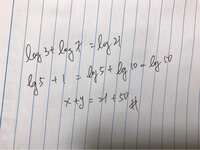 log 3 + log 7 = log 21
lg 5 + 1 = lg 5 + lg 10 = lg 50
x + y = 21 + 50 #